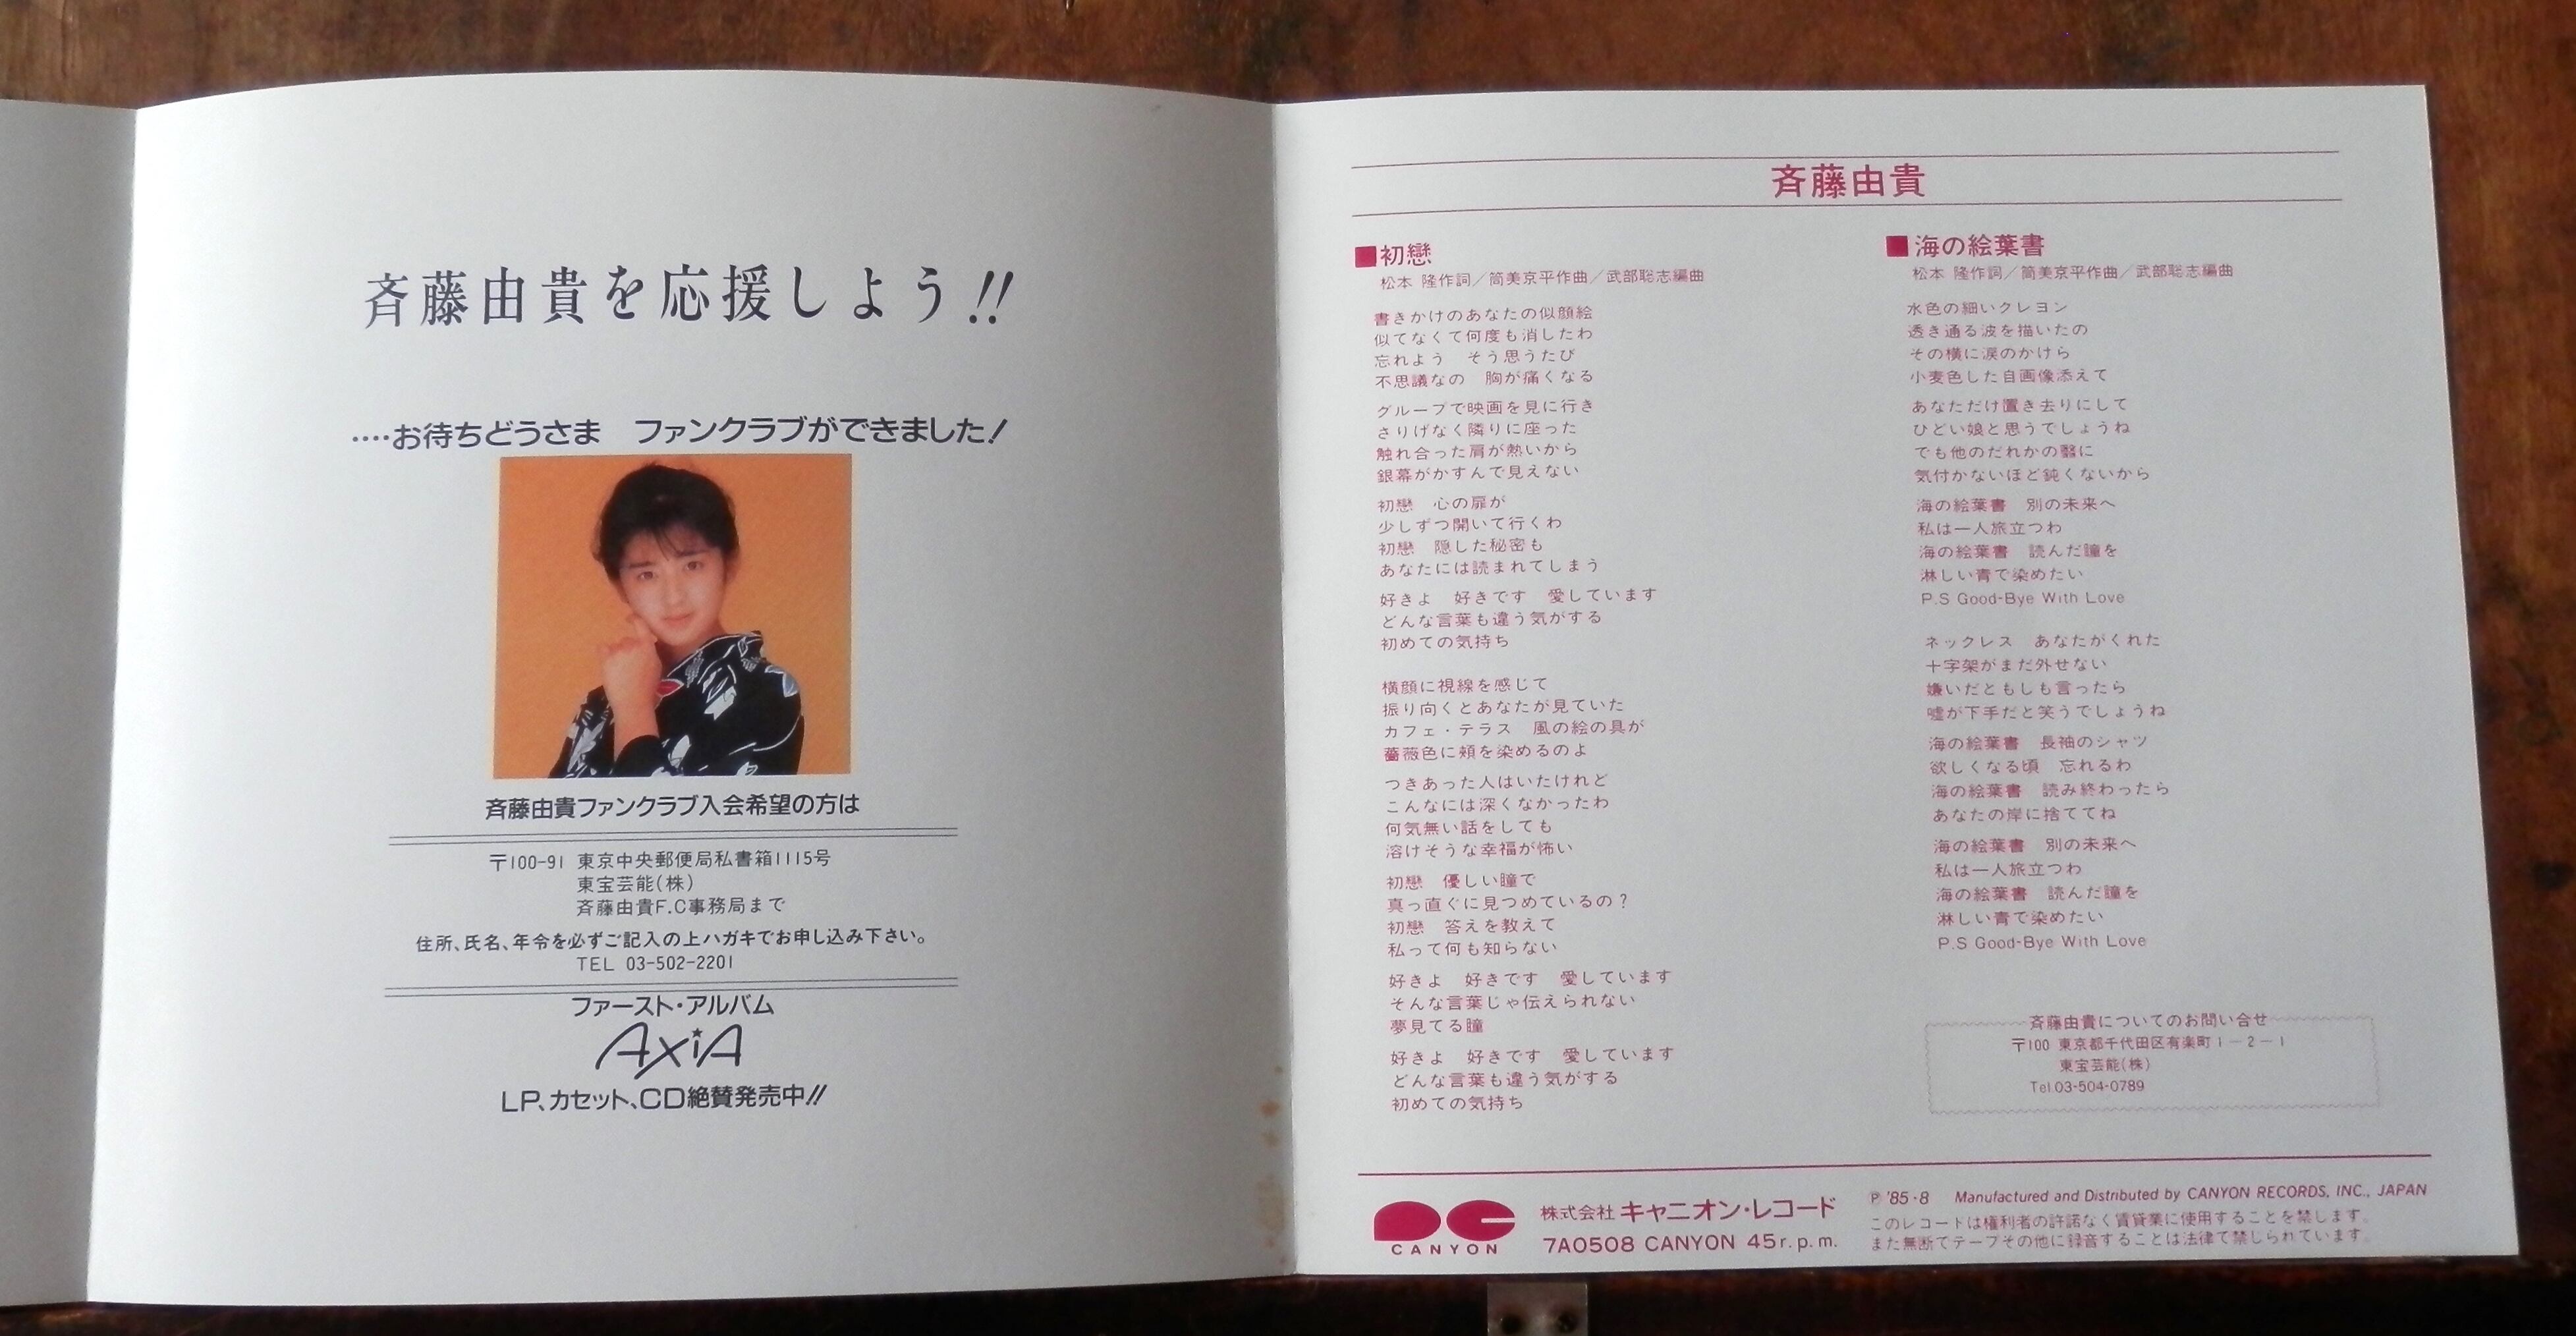 斉藤由貴を応援しよう!!
‥‥お待ちどうさま　ファンクラブができました!
斉藤由貴ファンクラブ入会希望の方は
〒100-91 東京中央郵便局私書箱1115号
東宝芸能(株)
斉藤由貴F.C事務局まで
住所、氏名、年令を必ずご記入の上ハガキでお申し込み下さい。
TEL 03-502-2201
ファースト・アルバム
AXIA
LP、カセット、CD絶賛発売中!!
斉藤由貴
■初戀
松本 隆作詞／筒美京平作曲／武部聡志編曲
書きかけのあなたの似顔絵
似てなくて何度も消したわ
忘れよう　そう思うたび
不思議なの　胸が痛くなる
グループで映画を見に行き
さりげなく隣りに座った
触れ合った肩が熱いから
銀幕がかすんで見えない
初戀　心の扉が
少しずつ開いて行くわ
初戀　隠した秘密も
あなたには読まれてしまう
好きよ　好きです　愛しています
どんな言葉も違う気がする
初めての気持ち
横顔に視線を感じて
振り向くとあなたが見ていた
カフェ・テラス　風の絵の具が
薔薇色に頬を染めるのよ
つきあった人はいたけれど
こんなには深くなかったわ
何気無い話をしても
溶けそうな幸福が怖い
初戀　優しい瞳で
真っ直ぐに見つめているの？
初戀　答えを教えて
私って何も知らない
好きよ　好きです　愛しています
そんな言葉じゃ伝えられない
夢見てる瞳
好きよ　好きです　愛しています
どんな言葉も違う気がする
初めての気持ち
■海の絵葉書
松本 隆作詞／筒美京平作曲／武部聡志編曲
水色の細いクレヨン
透き通る波を描いたの
その横に涙のかけら
小麦色した自画像添えて
あなただけ置き去りにして
ひどい娘と思うでしょうね
でも他のだれかの翳に
気付かないほど鈍くないから
海の絵葉書　別の未来へ
私は一人旅立つわ
海の絵葉書　読んだ瞳を
淋しい青で染めたい
P.S Good-Bye With Love
ネックレス　あなたがくれた
十字架がまだ外せない
嫌いだともしも言ったら
嘘が下手だと笑うでしょうね
海の絵葉書　長袖のシャツ
欲しくなる頃　忘れるわ
海の絵葉書　読み終わったら
あなたの岸に捨ててね
海の絵葉書　別の未来へ
私は一人旅立つわ
海の絵葉書　読んだ瞳を
淋しい青で染めたい
P.S Good-Bye With Love
斉藤由貴についてのお問い合せ
〒100 東京都千代田区有楽町1-2-1
東宝芸能(株)
Tel.03-504-0789
CANYON
株式会社 キャニオン・レコード
7A0508 CANYON 45r.p.m.
Ⓟ '85・8 Manufactured and Distributed by CANYON RECORDS, INC., JAPAN
このレコードは権利者の許諾なく賃貸業に使用することを禁します。
また無断でテープその他に録音することは法律で禁じられています。